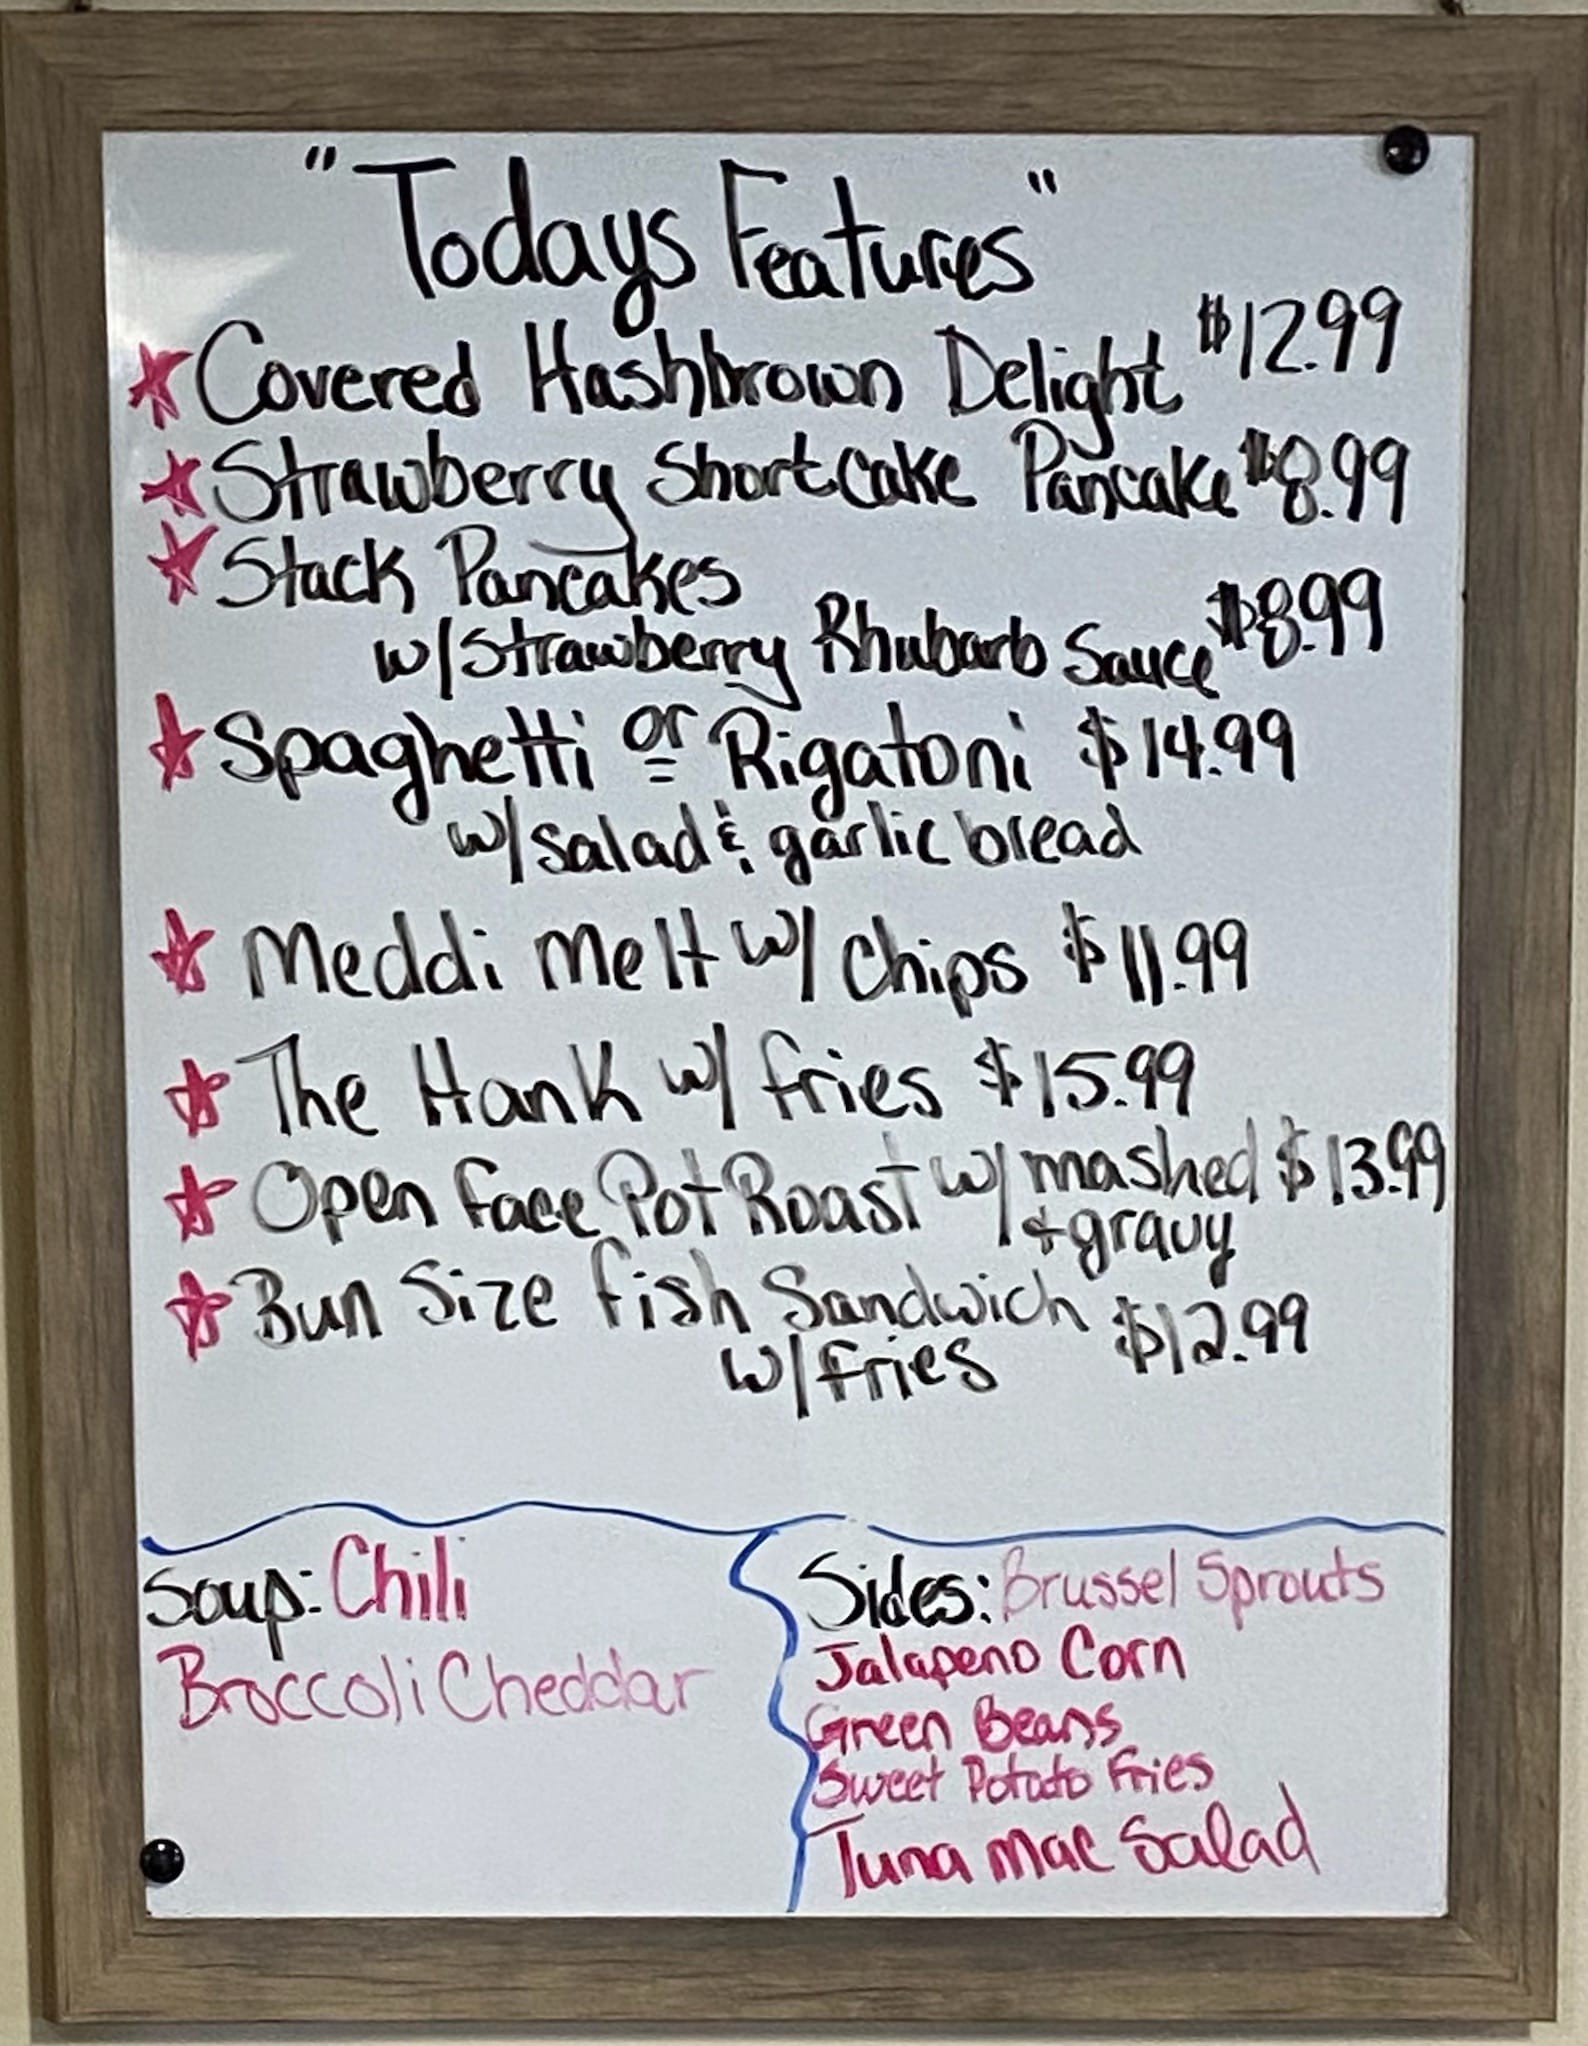 "Todays Features"
Covered Hashbrown Delight $12.99
Strawberry Shortcake Pancake $8.99
Stack Pancakes
w/Strawberry Rhubarb Sauce $8.99
Spaghetti or Rigatoni $14.99
w/salad & garlic bread
Meddi Melt w/ Chips $11.99
The Hank w/ fries $15.99
Open face Pot Roast w/ mashed $13.99
+gravy
Bun Size fish Sandwich $12.99
w/fries
Soup: Chili
Broccoli Cheddar
Sides: Brussel Sprouts
Jalapeno Corn
Green Beans
Sweet Potato Fries
Tuna Mac Salad